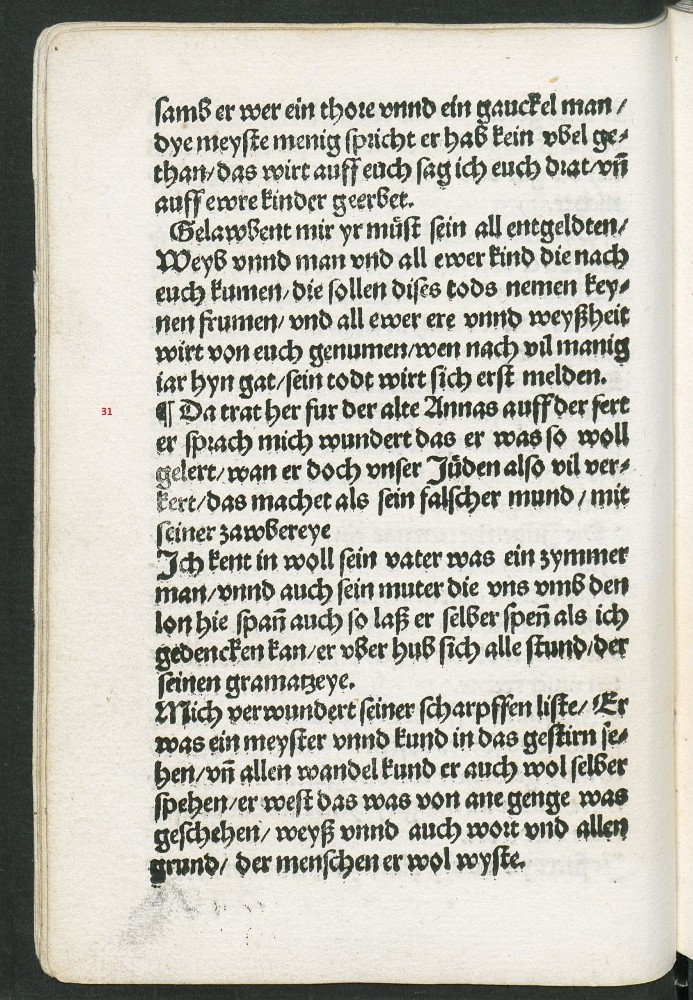 samb er wer ein thore vnnd ein gauckel man /
dye meyste menig spricht er hab kein vbel ge⸗
than/das wirt auff euch sag ich euch drat/vn̄
auff ewre kinder geerbet.
Gelawbent mir yr müst sein all entgeldten/
Weyb vnnd man vnd all ewer kind die nach
euch kumen/die sollen dises tods nemen key⸗
nen frumen/ vnd all ewer ere vnnd weyßheit
wirt von euch genumen/wen nach vil manig
iar hyn gat/sein todt wirt sich erst melden.
31 ¶ Da trat her fur der alte Annas auff der fert
er sprach mich wundert das er was so woll
gelert/wan er doch vnser Jüden also vil ver⸗
kert/das machet als sein falscher mund / mit
seiner zawbereye
Ich kent in woll sein vater was ein zymmer
man/vnnd auch sein muter die vns vmb den
lon hie span̄ auch so laß er selber spen̄ als ich
gedencken kan/er vber hub sich alle stund/der
seinen gramatzeye.
Mich verwundert seiner scharpffen liste/ Er
was ein meyster vnnd kund in das gestirn se⸗
hen/vn̄ allen wandel kund er auch wol selber
spehen/er west das was von ane genge was
geschehen/ weyß vnnd auch wort vnd allen
grund/ der menschen er wol wyste.